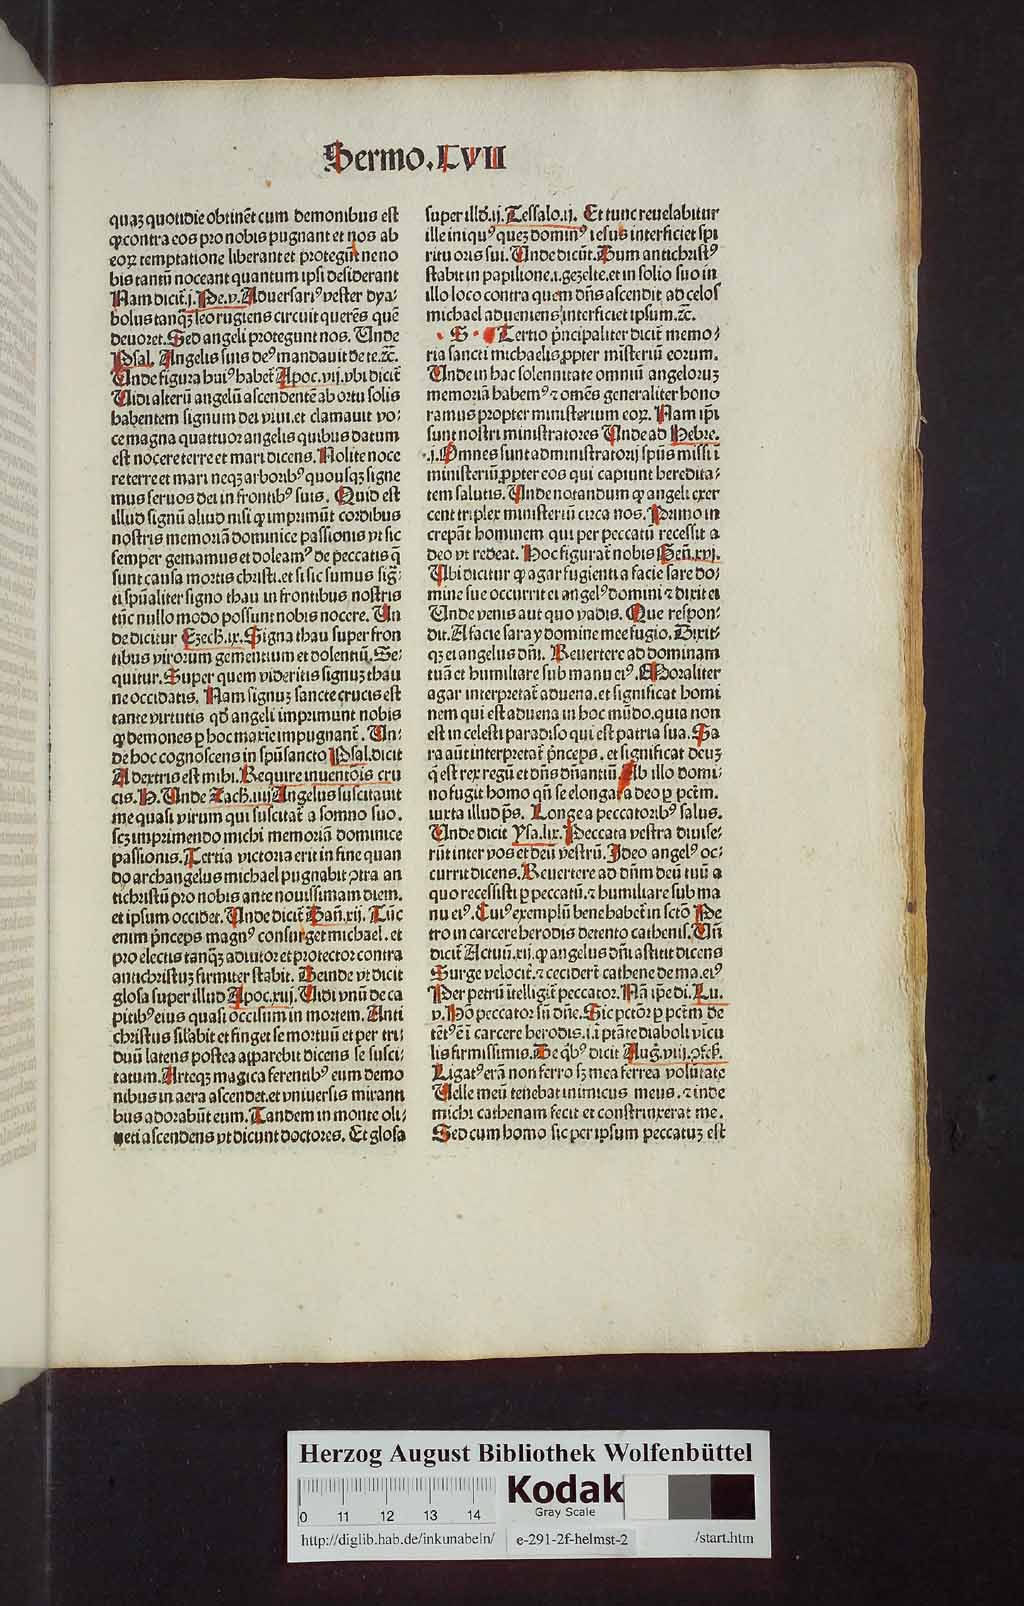 Sermo.LVII
quaꝫ quotidie obtinēt cum demonibus est
ꝙ contra eos pro nobis pugnant et nos ab
eoꝝ temptatione liberant et protegūt ne no
bis tantū noceant quantum ipsi desiderant
Nam dicit̄.j.Pe.v.Aduersariꝰ vester dya⸗
bolus tanqꝫ leo rugiens circuit querēs quē
deuoret. Sed angeli protegunt nos. Unde
Psal. Angelis suis deꝰ mandauit de te.ꝛc̄.
Unde figura huiꝰ habet̄ Apoc.vij.vbi dicit̄
Uidi alterū angelū ascendentē ab ortu solis
habentem signum dei viui.et clamauit vo⸗
ce magna quattuor angelis quibus datum
est nocere terre et mari dicens. Nolite noce
re terre et mari neqꝫ arboribꝰ quousqꝫ signe
mus seruos dei in frontibꝰ suis. Quid est
illud signū aliud nisi ꝙ imprimūt cordibus
nostris memoriā dominice passionis vt sic
semper gemamus et doleamꝰ de peccatis q̄
sunt causa mortis christi.et si sic sumus sig⸗
ti spūaliter signo thau in frontibus nostris
tūc nullo modo possunt nobis nocere. Un
de dicitur Ezech.ix.Signa thau super fron
tibus virorum gementium et dolentiū. Se⸗
quitur. Super quem videritis signuꝫ thau
ne occidatis. Nam signuꝫ sancte crucis est
tante virtutis qd̄ angeli imprimunt nobis
ꝙ demones ꝑ hoc maxie impugnant̄. Un⸗
de hoc cognoscens in spūsancto Psal.dicit
A dextris est mihi.Require inuentōis cru
cis.H. Unde Zach.iiij Angelus suscitauit
me quasi virum qui suscitat̄ a somno suo.
scꝫ imprimendo michi memoriā dominice
passionis. Tertia victoria erit in fine quan
do archangelus michael pugnabit ꝯtra an
tichristū pro nobis ante nouissimam diem.
et ipsum occidet. Unde dicit̄ Dan̄.xij. Tūc
enim pr̄nceps magnꝰ consurget michael.et
pro electis tanqꝫ adiutor et protector contra
antichristuꝫ firmiter stabit. Deinde vt dicit
glosa super illud Apoc.xiij. Uidi vnū de ca
pitibꝰ eius quasi occisum in mortem. Anti
christus silabit et finget se mortuū et per tri⸗
duū latens postea apparebit dicens se susci⸗
tatum. Arteqꝫ magica ferentibꝰ eum demo
nibus in aera ascendet.et vniuersis miranti
bus adorabūt eum. Tandem in monte oli⸗
ueti ascendens vt dicunt doctores. Et glosa
super illd̄.ij.Tessalo.ij. Et tunc reuelabitur
ille iniquꝰ queꝫ dominꝰ iesus interficiet spi
ritu oris sui. Unde dicūt. Dum antichristꝰ
stabit in papilione.i.gezelte.et in solio suo in
illo loco contra quem dn̄s ascendit ad celos
michael adueniens interficiet ipsum.ꝛc̄.
S Tertio pn̄cipaliter dicit̄ memo⸗
ria sancti michaelis ꝓpter mīsteriū eorum.
Unde in hac solennitate omniū angeloruꝫ
memoriā habemꝰ ⁊ omēs generaliter hono
ramus propter ministerium eoꝝ. Nam ip̄i
sunt nostri ministratores Unde ad Hebre.
.j.Omnes sunt administratorij spūs missi ī
ministeriū ꝓpter eos qui capiunt heredita⸗
tem salutis. Unde notandum ꝙ angeli exer
cent triplex ministeriū circa nos. Primo in
crepāt hominem qui per peccatū recessit a
deo vt redeat. Hoc figurat̄ nobis Gen̄.xvj.
Ubi dicitur ꝙ agar fugienti a facie sare do⸗
mine sue occurrit ei angelꝰ domini ⁊ dixit ei
Unde venis aut quo vadis. Que respon⸗
dit. A facie saray domine mee fugio. Dixit⸗
qꝫ ei angelus dn̄i. Reuertere ad dominam
tuā et humiliare sub manu eiꝰ. Moraliter
agar interpretat̄ aduena.et significat homi
nem qui est aduena in hoc mūdo.quia non
est in celesti paradiso qui est patria sua. Sa
ra aūt interpretat̄ pn̄ceps. et significat deuꝫ
q̄ est rex regū et dn̄s dn̄antiū. Ab illo domi⸗
no fugit homo qn̄ se elongat a deo ꝑ pctm̄.
iuxta illud ps̄. Longe a peccatoribꝰ salus.
Unde dicit Ysa.lix. Peccata vestra diuise⸗
rūt inter vos et deū vestrū. Ideo angelꝰ oc⸗
currit dicens. Reuertere ad dn̄m deū tuū a
quo recessisti ꝑ peccatū.⁊ humiliare sub ma
nu eiꝰ. Cuiꝰ exemplū bene habet̄ in scto Pe
tro in carcere herodis detento cathenis. Un̄
dicit̄ Actuū.xij.ꝙ angelus dn̄i astitit dicens
Surge velocit̄.⁊ cecidert̄ cathene de ma.eiꝰ
Per petrū ītelligit̄ peccator. Nā ip̄e di. Lu.
v. Hō peccator sū dn̄e. Sic pctōr ꝑ pctm̄ de
tētꝰ ē ī carcere herodis.i.ī ptāte diaboli vīcu
lis firmissimis. De qͥbꝰ dicit Aug.viij.ꝯfess.
Ligatꝰ erā non ferro sꝫ mea ferrea volūtate
Uelle meū tenebat inimicus meus.⁊ inde
michi cathenam fecit et constrinxerat me.
Sed cum homo sic per ipsum peccatuꝫ est
Herzog August Bibliothek Wolfenbüttel
0 11 12 13 14
Kodak
Gray Scale
http://diglib.hab.de/inkunabeln/ e-291-2f-helmst-2 /start.htm